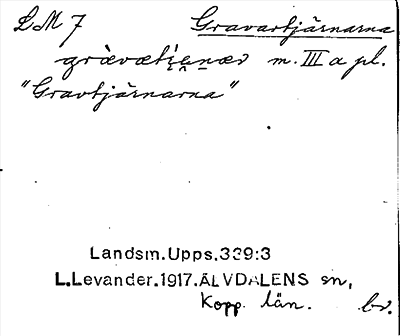 LM 7 Gravartjärnarna
m. III a pl.
"Gravtjärnarna"
Landsm.Upps.339:3
L.Levander.1917.ÄLVDALENS sn,
Kopp. län. bv.